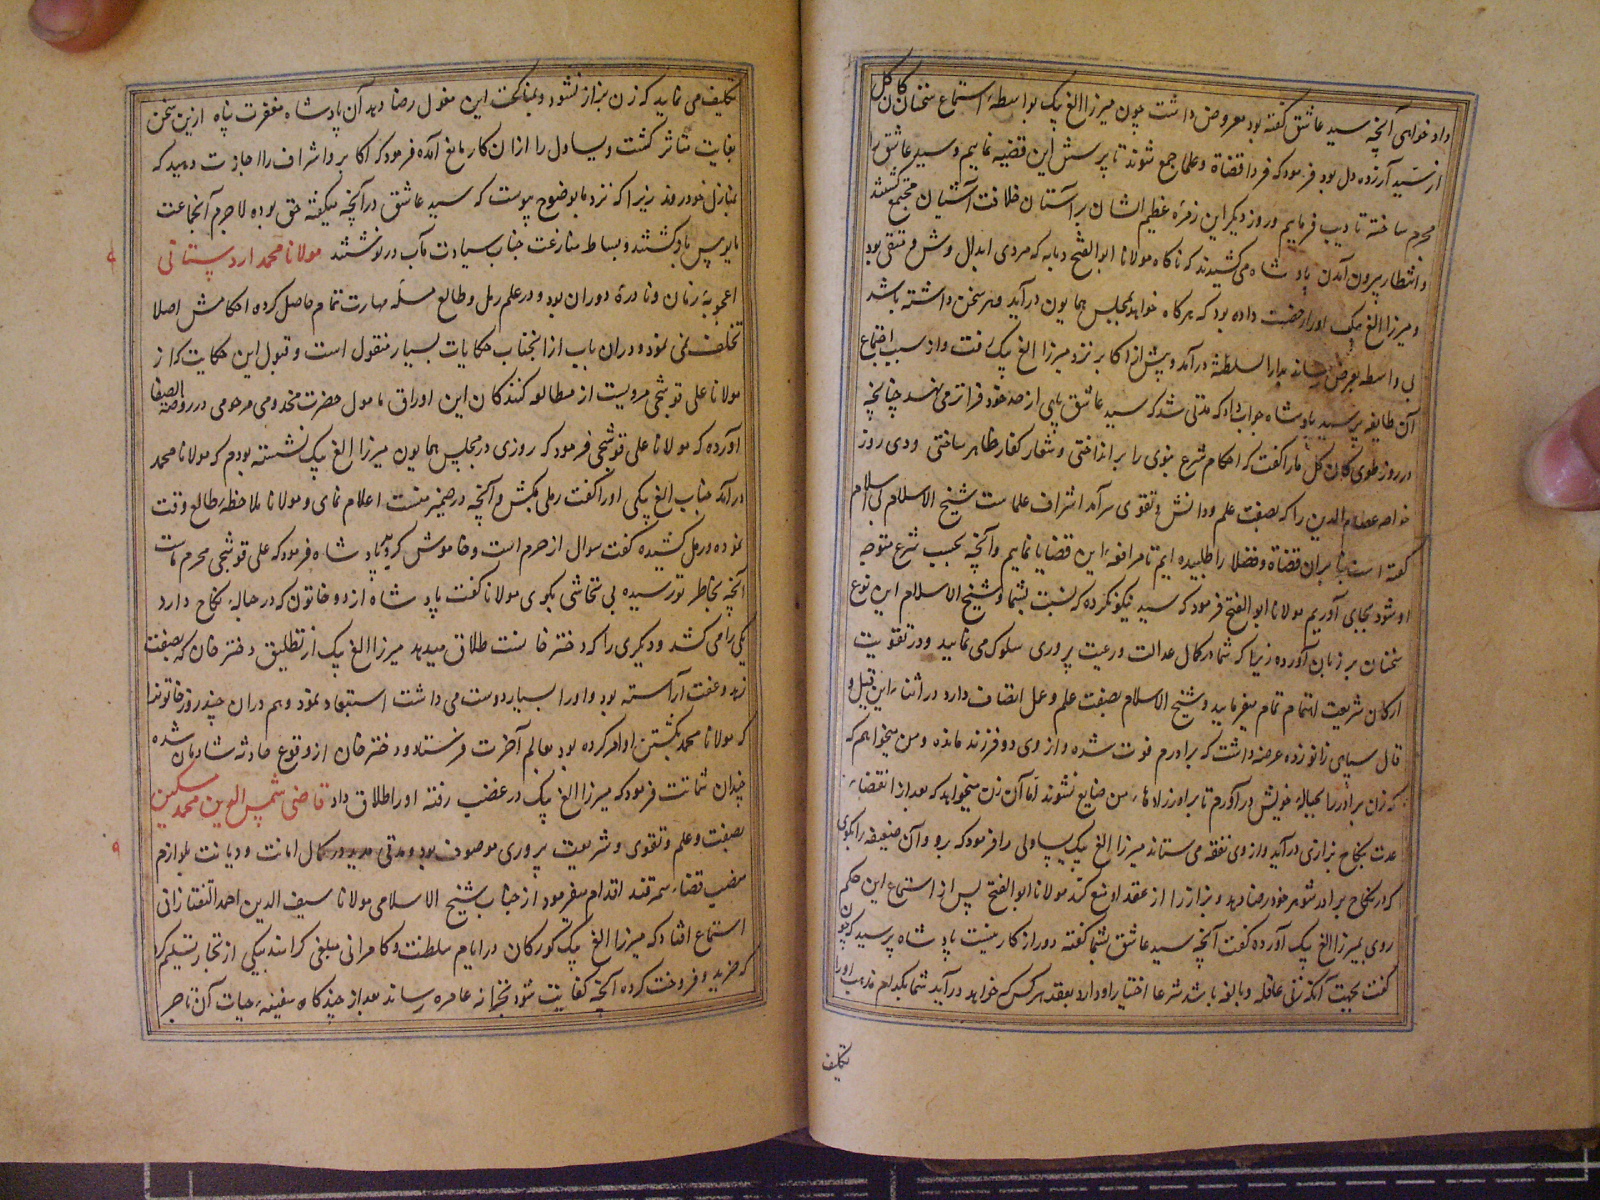 داد خواهی آنچه سید عاشق گفته بود معروض داشت چون میرزا الغ بیک بواسطهٔ استماع سخنان کان کل
از سید آزرده دل بود فرمود که فردا قضاة و علما جمع شوند تا پرسش این قضیه نماییم و سید عاشق را
مجرم ساخته تادیب فرماییم و روز دیگر این زمرهٔ عظیم الشان بر آستان خلافت آشیان مجتمع گشتند
و انتظار بیرون آمدن پادشاه می کشیدند که ناگاه مولانا ابو الفتح دیابه که مردی ابدال وش و متقی بود
و میرزا الغ بیک او را رخصت داده بود که هرگاه خواهد بمجلس همایون درآید و هر سخن داشته باشد
بی واسطه بعرض رساند بدار السلطنة درآمد و پیش از اکابر نزد میرزا الغ بیک رفت و از سبب اجتماع
آن طایفه پرسید پادشاه جواب داد که مدتی شد که سید عاشق پای از حد خود فراتر می نهد چنانچه
در روز طوی کان کل مارا گفت که احکام شرع نبوی را بر انداختی و شعار کفار ظاهر ساختی و دی روز
خواجه عصام الدین را که بصفت علم و دانش و تقوی سرآمد اشراف علماست شیخ الاسلام بی اسلام
گفته است بنابران قضاة و فضلا را طلبیده ایم تا مرافعهٔ این قضایا نماییم و آنچه بحسب شرع متوجه
او شود بجای آوریم مولانا ابو الفتح فرمود که سید نیکو نکرده که نسبت بشما و شیخ الاسلام این نوع
سخنان بر زبان آورده زیرا که شما در کمال عدالت و رعیت پروری سلوک می نمایید و در تقویت
ارکان شریعت اهتمام تمام میفرمایید و شیخ الاسلام بصفت علم و عمل اتصاف دارد در اثناء این قیل و
قال سپاهی زانو زده عرضه داشت که برادرم فوت شده و از وی دو فرزند مانده و من میخواهم که
که زن برادر را بحبالهٔ خویش درآورم تا برادرزادهاء من ضایع نشوند اما آن زن میخواهد که بعد از انقضاء
عدت بنکاح بزازی درآید و از وی نفقه می ستاند میرزا الغ بیک یساولی را فرمود که برو و آن ضعیفه را بگوی
که در نکاح برادر شوهر خود رضا دهد و بزاز را از عقد او منع کند مولانا ابو الفتح پس از استماع این حکم
روی بمیرزا الغ بیک آورده گفت آنچه سید عاشق بشما گفته دور از کار نیست پادشاه پرسید که چون
گفت بجهت آنکه زنی عاقله و بالغه باشد شرعا اختیار او دارد بعقد هر کس خواهد درآید شما بکدام مذهب او را
تکلیف
تکلیف می نمایید که زن بزاز نشود و بمناکحت این مغول رضا دهد آن پادشاه مغفرت پناه ازین سخن
بغایت متاثر گشت و یساول را ازان کار مانع آمده فرمود که اکابر و اشراف را اجازت دهید که
بمنازل خود روند زیرا که نزد ما بوضوح پیوست که سید عاشق در آنچه میگفته حق بوده لاجرم آنجماعت
مایوس باز گشتند و بساط منازعت جناب سیادت مآب در نوشتند مولانا محمد اردستانی
اعجوبهٔ زمان و نادرهٔ دوران بود و در علم رمل و طالع مسئله مهارت تمام حاصل کرده احکامش اصلا
تخلف نمی نمود و دران باب ازانجناب حکایات بسیار منقول است و قبول این حکایت که از
مولانا علی قوشجی مرویست از مطالعه کنندکان این اوراق مامول حضرت مخدومی مرحومی در روضة الصفا
آورده که مولانا علی قوشجی فرمود که روزی در مجلس همایون میرزا الغ بیک نشسته بودم که مولانا محمد
درآمد جناب الغ بیکی او را گفت رملی بکش و آنچه در ضمیر منست اعلام نمای و مولانا ملاحظهٔ طالع وقت
نموده و رمل کشیده گفت سوال از حرم است و خاموش گردید پادشاه فرمود که علی قوشجی محرم ماست
آنچه بخاطر تو رسیده بی تحاشی بگوی مولانا گفت پادشاه از دو خاتون که در حبالهٔ نکاح دارد
یکی را می کشد و دیگری را که دختر خانست طلاق میدهد میرزا الغ بیک از تطلیق دختر خان که بصفت
زهد و عفت آراسته بود و او را بسیار دوست می داشت استبعاد نمود و هم دران چند روز خاتونیرا
که مولانا محمد بکشتن او امر کرده بود بعالم آخرت فرستاد و دختر خان از وقوع حادثه شادمان شده
چندان شماتت فرمود که میرزا الغ بیک در غضب رفته او را طلاق داد قاضی شمس الدین محمد مسکین
بصفت و علم و تقوی و شریعت پروری موصوف بود و مدتی مدید در کمال امانت و دیانت بلوازم
منصب قضاء سمرقند اقدام میفرمود از جناب شیخ الاسلامی مولانا سیف الدین احمد التفتازانی
استماع افتاد که میرزا الغ بیک کورکان در ایام سلطنت و کامرانی مبلغی کرانمند بیکی از تجار تسلیم کرد
که خرید و فروخت کرده آنچه کفایت شود بخزانه عامره رساند بعد از چندگاه سفینهٔ حیات آن تاجر